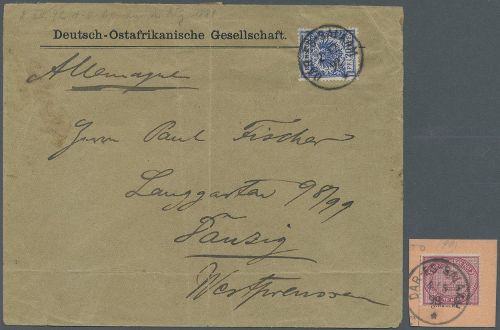 Deutsch-Ostafrikanische Gesellschaft.
DAR-ES-SALAAM
Allemagne
Herrn Paul Fischer
Langgarten 98/99
Danzig
Westpreussen
DAR-ES-SALAAM